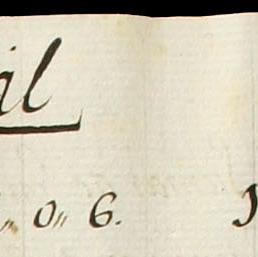 il
0„ 6.